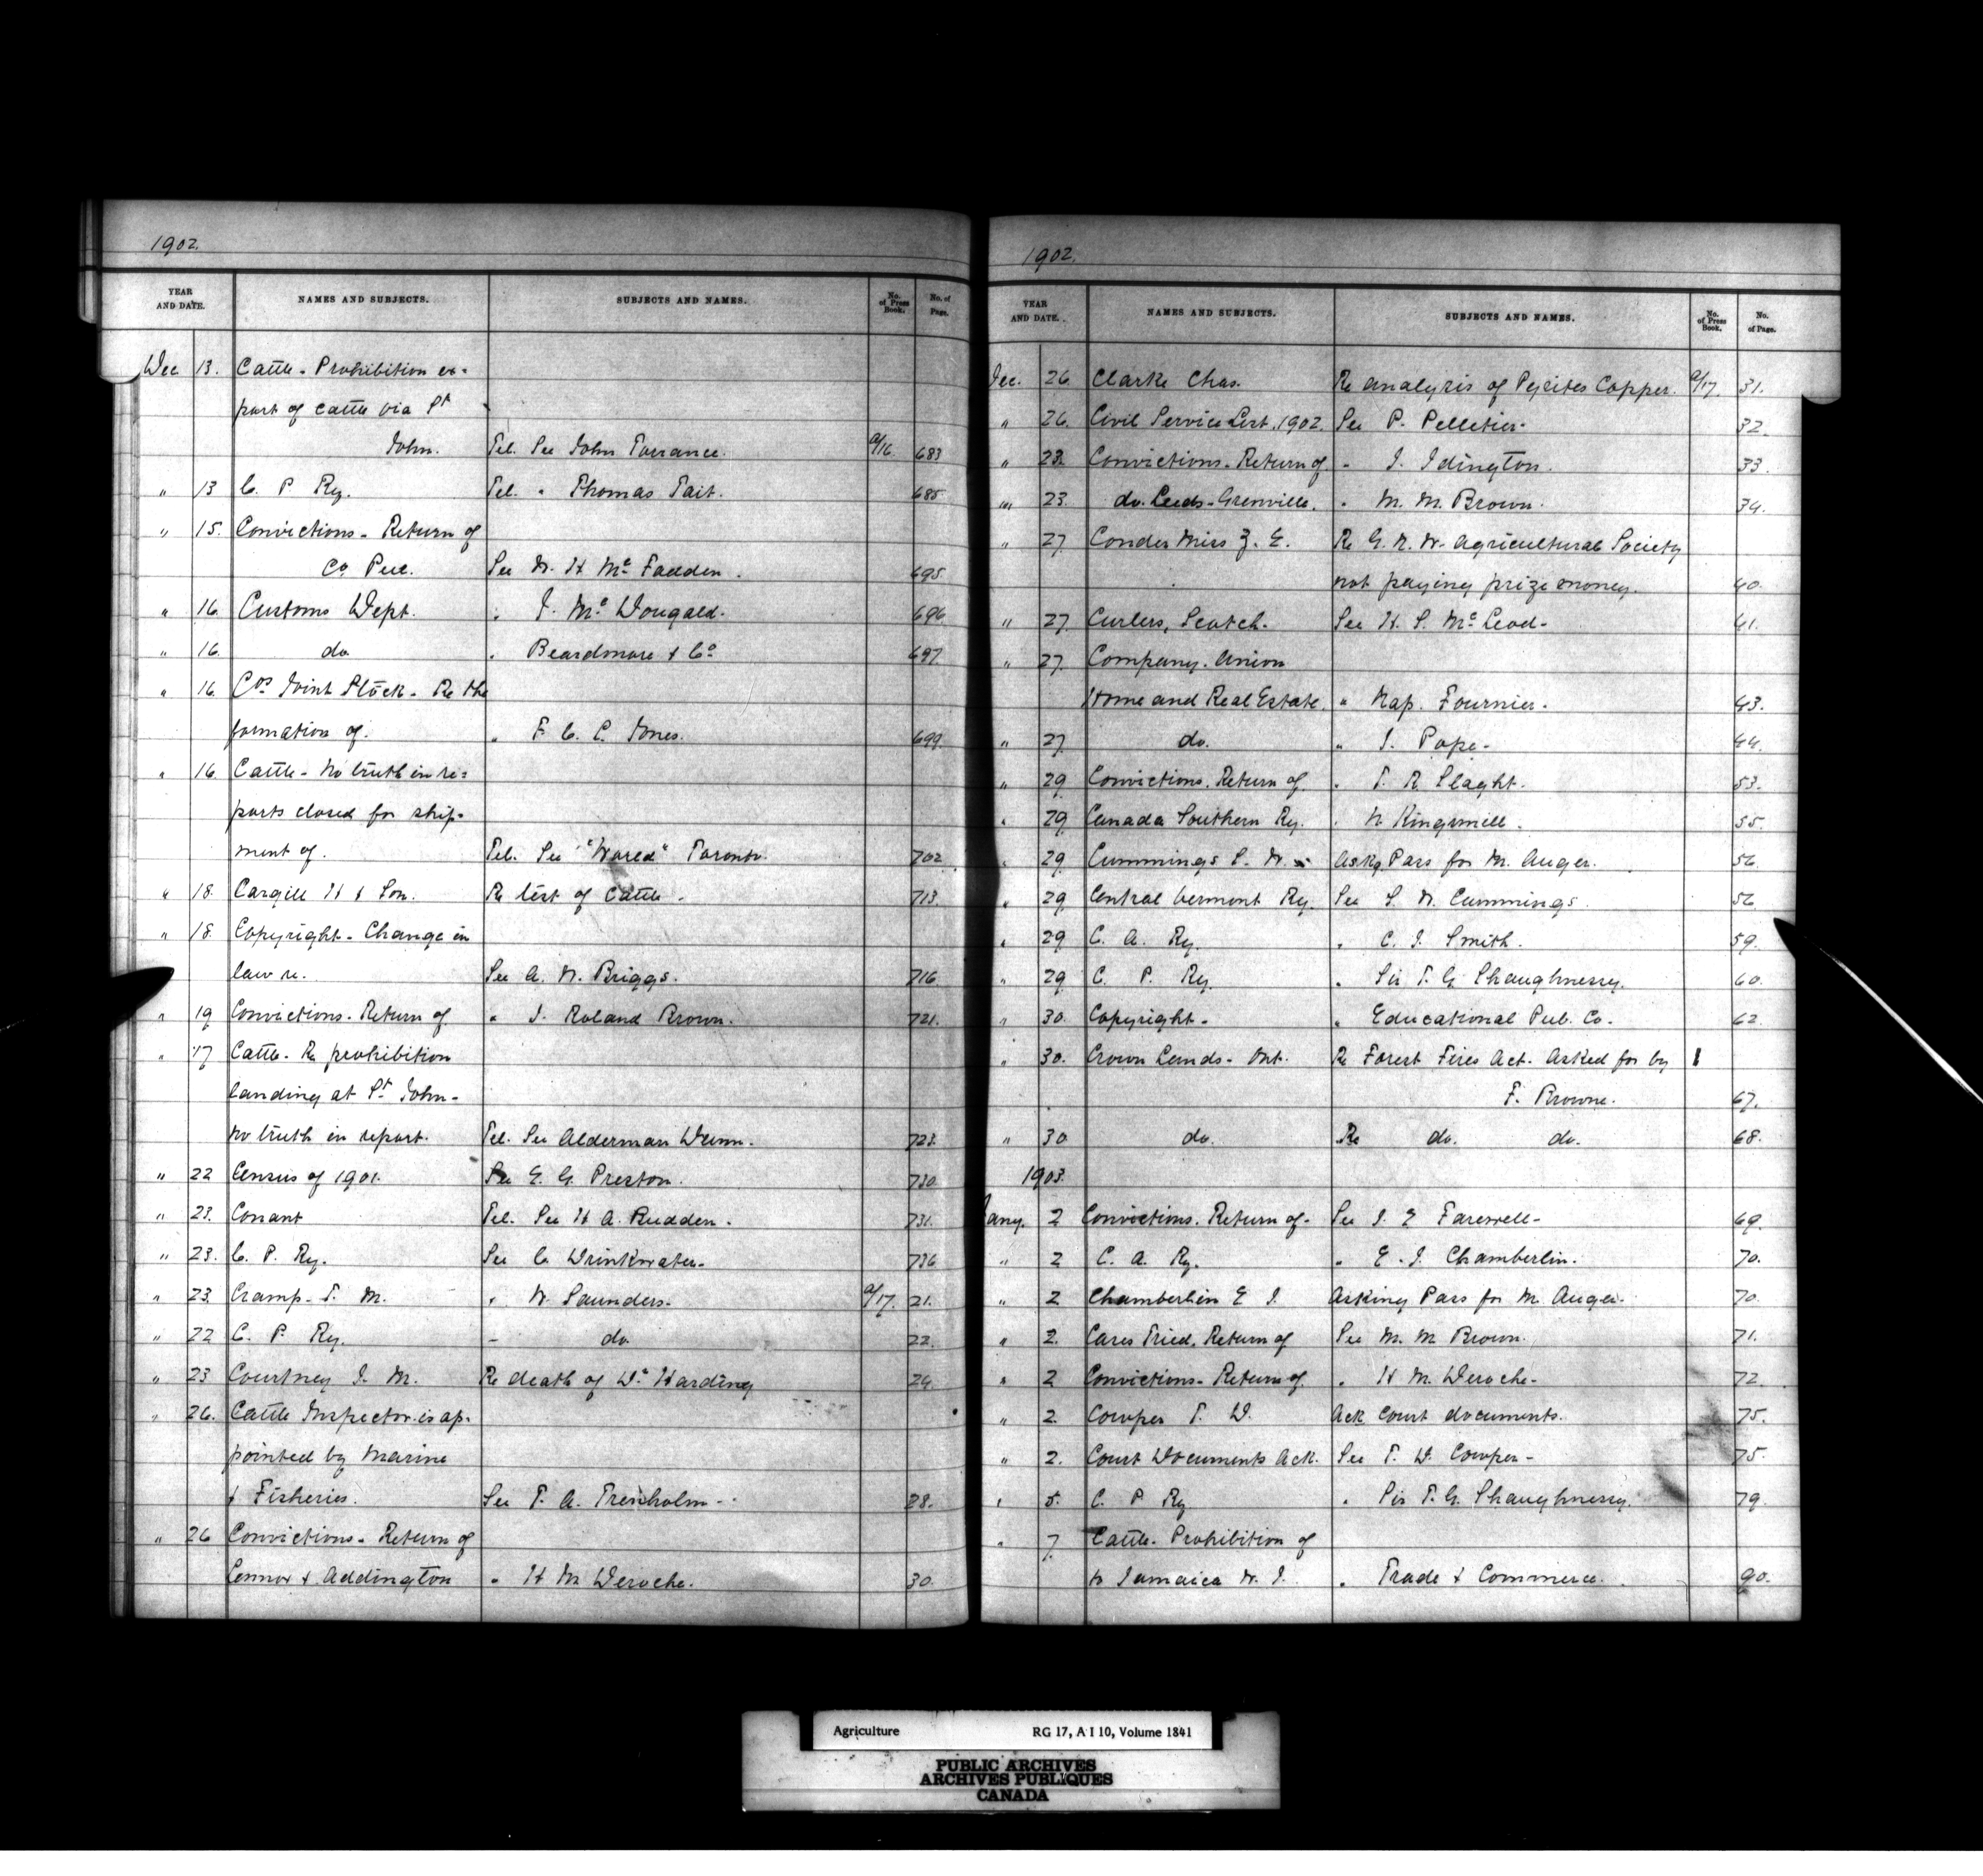 1902.
YEAR AND DATE. NAMES AND SUBJECTS. SUBJECTS AND NAMES. No. of Press Book. No. of Page.
Dec 13. Cattle - Prohibition ex-
port of cattle via St
John. Tel. See John Torrance. a/16. 683
" 13 C. P. Ry. Tel. " Thomas Tait. 685
" 15. Convictions - Return of
Co. Peel. See W. H. McFadden. 695.
" 16. Customs Dept. " J. McDougald. 696
" 16. do. " Beardmore & Co 697.
" 16. Cos Joint Stock - Re the
formation of. " F. C. C. Jones. 699.
" 16. Cattle - No truth in re-
ports closed for ship-
ment of. Tel. See "World" Toronto. 702
" 18. Cargill H & Son. Re test of cattle. 713.
" 18. Copyright - Change in
law re. See A. W. Briggs. 716.
" 19 Convictions - Return of " J. Roland Brown. 721.
" 17 Cattle - Re prohibition
landing at St. John -
no truth in report. Tel. See Alderman 723.
" 22 Census of 1901. See E. G. Preston. 730.
" 23. Conant Tel. See H A. Rudden. 731.
" 23. C. P. Ry. See C. Drinkwater. 736
" 23. Cramp - T. M. " W. Saunders. a/17. 21.
" 22 C. P. Ry. - do. 22.
" 23 Courtney J. M. Re death of Dr. Harding 24.
" 26. Cattle Inspector is ap-
pointed by Marine
& Fisheries. See T. A. Trenholm - 28.
" 26 Convictions - Return of
Lennox & Addington " H M Deroche. 30.
1902.
YEAR AND DATE. NAMES AND SUBJECTS. SUBJECTS AND NAMES. No. of Press Book. No. of Page.
Dec. 26. Clarke Chas. Re analysis of Pyrites Copper. a/17. 31.
" 26. Civil Service List, 1902. See P. Pelletier. 32.
" 23. Convictions - Return of " J. Idington. 33.
" 23. do. Leeds - Grenville. " M. M. Brown. 34.
" 27 Conder Miss Z. E. Re G. N. W. Agricultural Society
not paying prize money. 40.
" 27 Curlers, Scotch. See H. S. McLeod - 41.
" 27. Company. Union
Home and Real Estate. " Nap. Fournier. 43.
" 27. do. " J. Pope - 44.
" 29. Convictions. Return of " T. R Slaght. 53.
" 29. Canada Southern Ry. " N. Kingsmill. 55.
" 29. Cummings S. W. - Askg. Pass for M. Auger. 56.
" 29. Central Vermont Ry. See S. W. Cummings. 56
" 29. C. A. Ry. " C. J. Smith. 59.
" 29. C. P. Ry. " Sir T. G. Shaughnessy. 60.
" 30. Copyright - " Educational Pub. Co. 62
" 30. Crown Lands - Ont. Re Forest Fires Act - Asked for by
F. Browne. 67.
" 30. do. Re do. do. 68.
1903.
Jany. 2 Convictions. Return of - See J. E Farewell - 69.
" 2 C. A. Ry. " E. J. Chamberlin. 70.
" 2 Chamberlin E J. Asking Pass for M. Auger. 70.
" 2. Cases Tried. Return of See M. M. Brown. 71.
" 2 Convictions - Return of. " H M. Deroche - 72.
" 2. Cowper T. D. Ack court documents. 75.
" 2. Court Documents Ack. See T. D. Cowper - 75.
" 5. C. P Ry " Sir T. G. Shaughnessy. 79.
" 7. Cattle - Prohibition of
to Jamaica W. I. " Trade & Commerce. 90.
Agriculture RG 17, A I 10, Volume 1841
PUBLIC ARCHIVES
ARCHIVES PUBLIQUES
CANADA